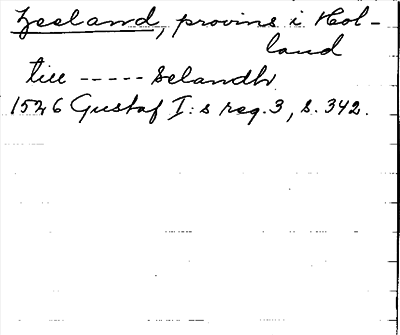 Zeeland, provins i Hol-
land
till ----- Selandh
1526 Gustaf I:s reg. 3, s. 342.